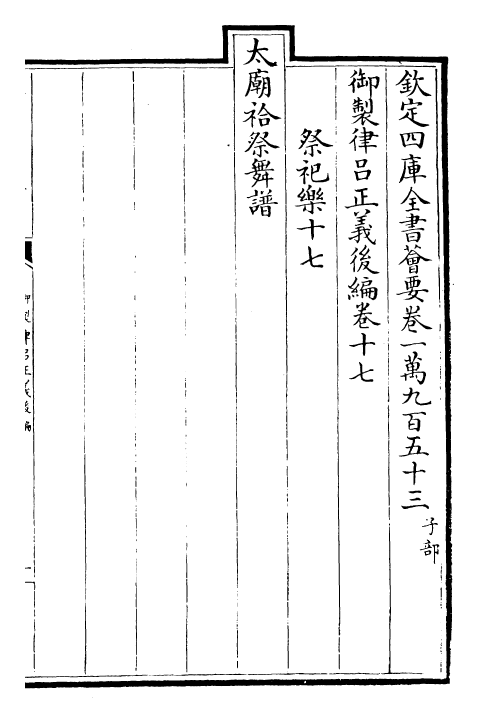 欽定四庫全書薈要卷一萬九百五十三 子部
御製律呂正義後編卷十七
祭祀樂十七
太廟祫祭舞譜
御製律呂正義後編
一